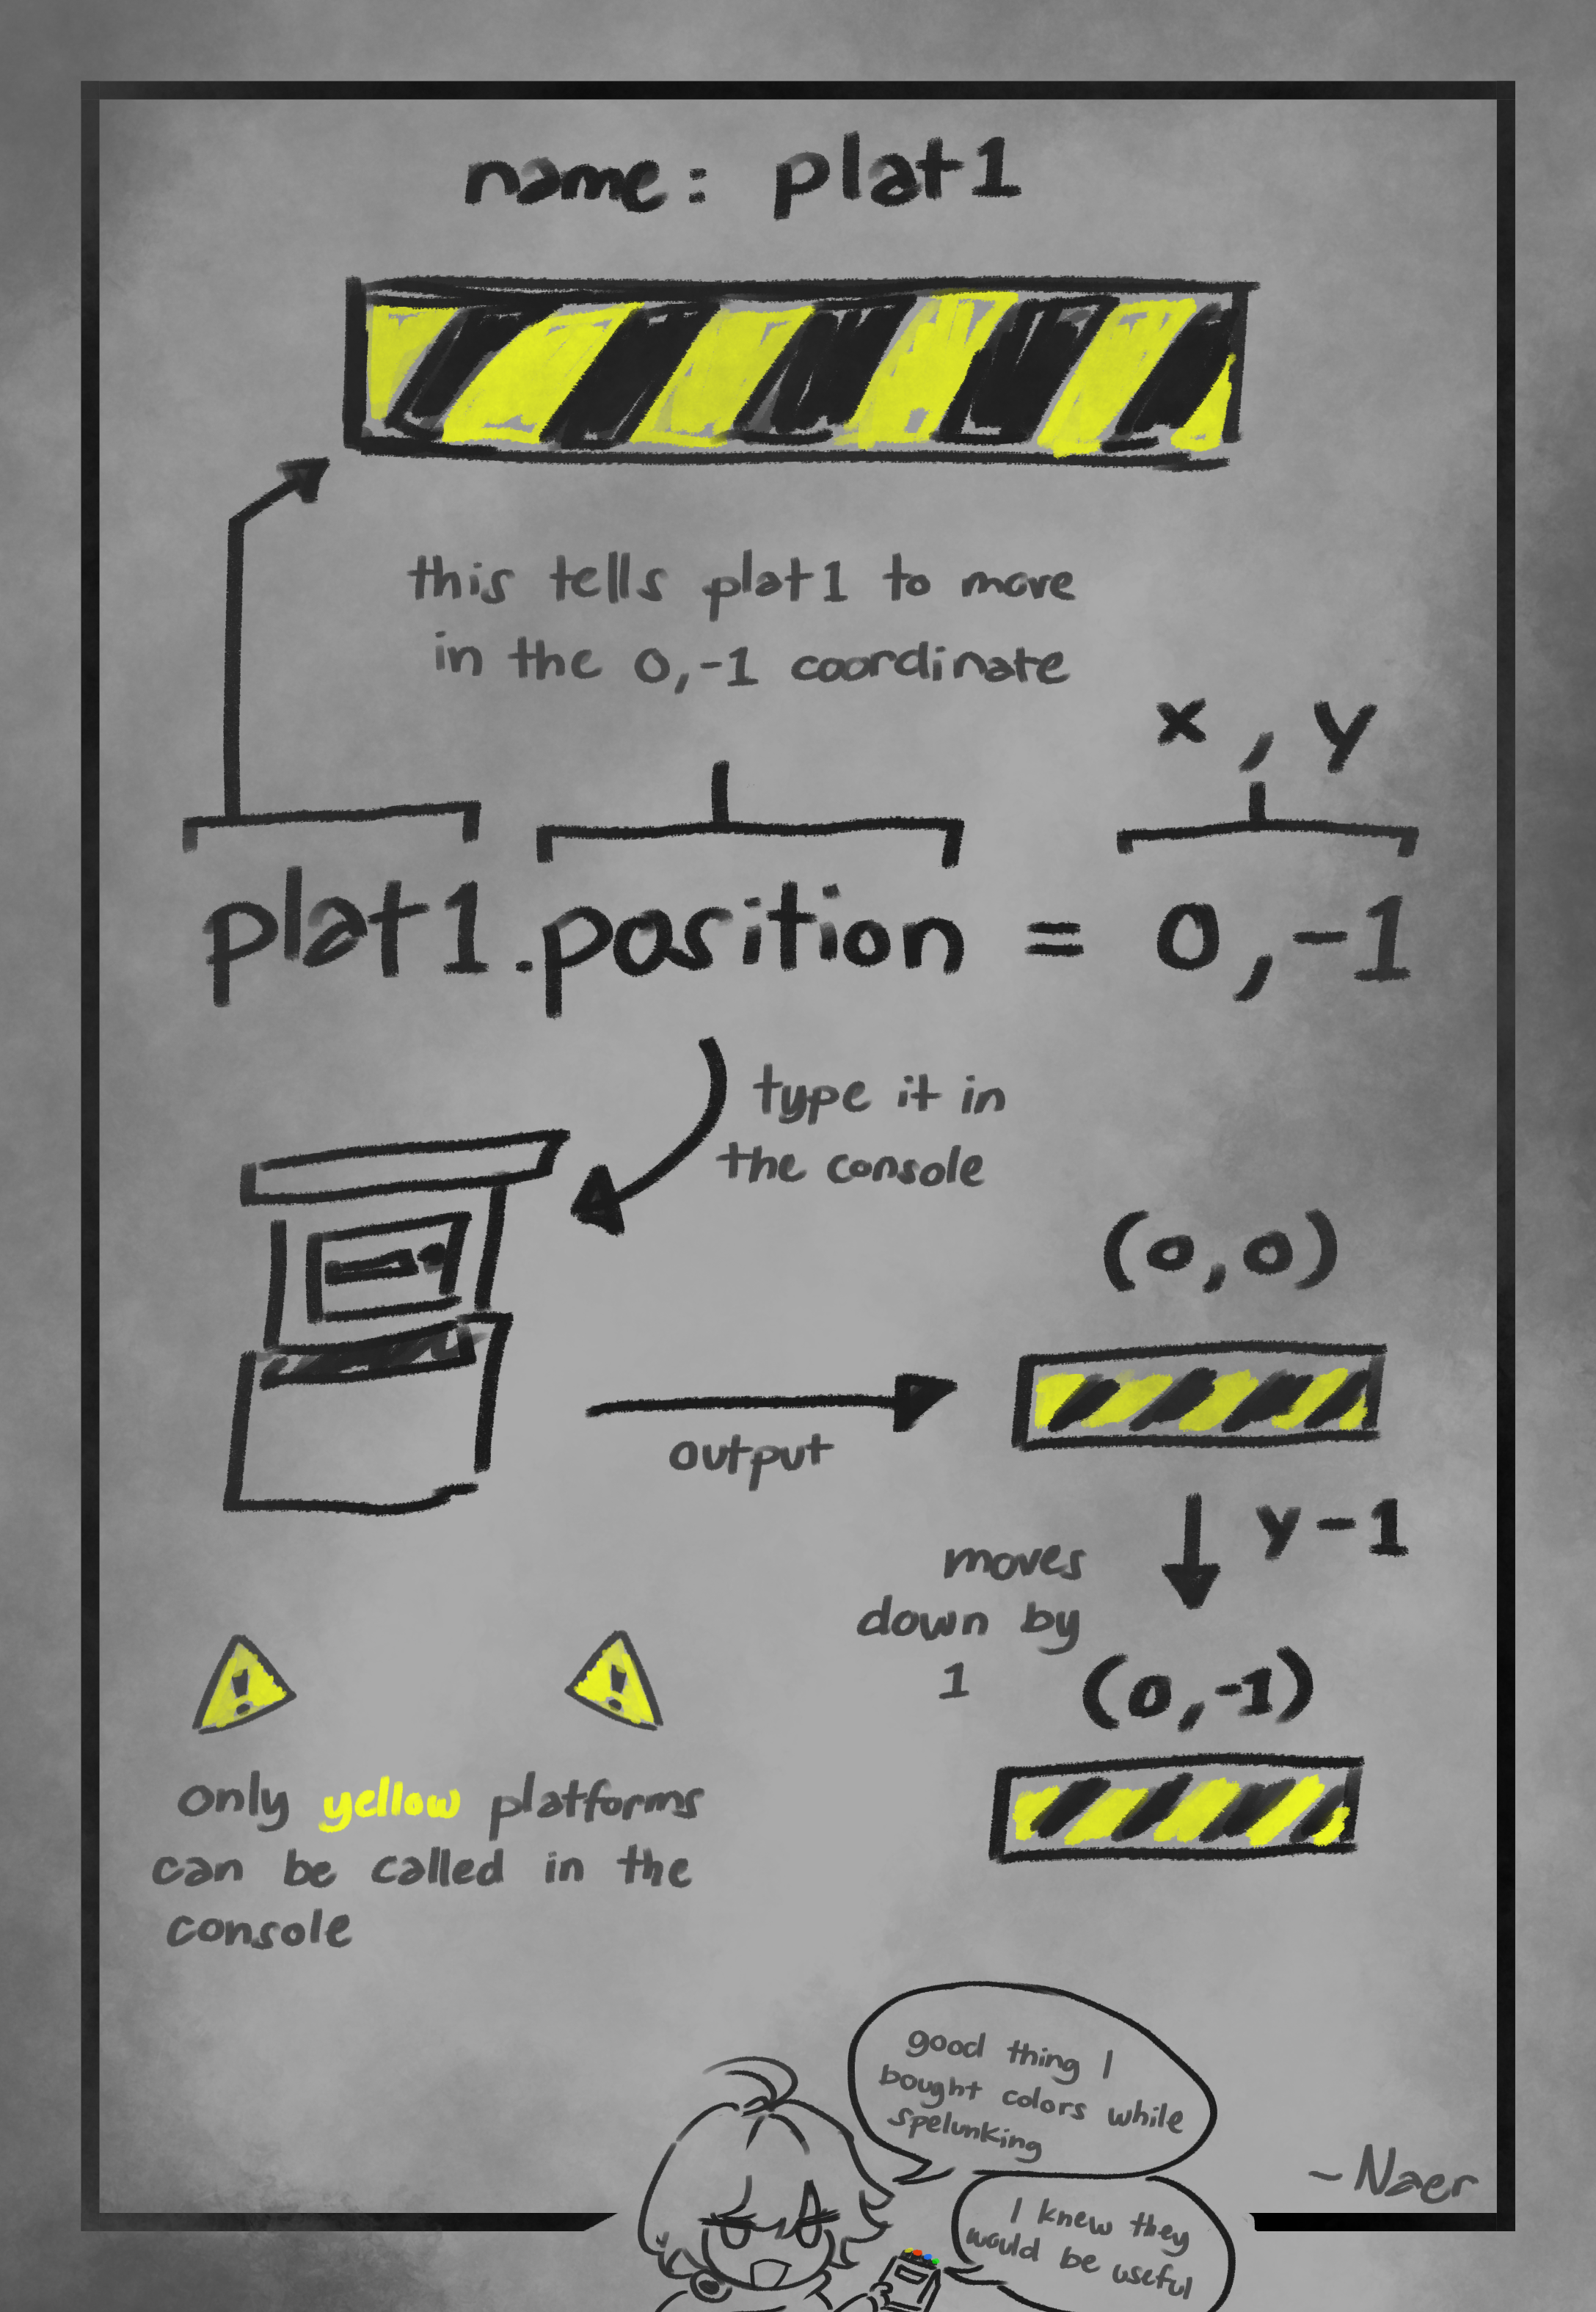 name: plat1
this tells plat1 to move
in the 0,-1 coordinate
x, y
plat1.position = 0,-1
type it in
the console
(0,0)
output
y-1
moves
down by
1
(0,-1)
! !
only yellow platforms
can be called in the
console
good thing I
bought colors while
spelunking
~Naer
I knew they
would be useful